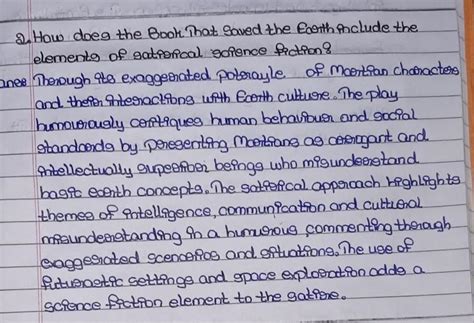 2. How does the Book That Saved the Earth include the
elements of satirical science fiction?
ans Through its exaggerated potrayle of Martian characters
and their interactions with Earth culture. The play
humourously critiques human behaviour and social
standards by presenting Martians as arrogant and
intellectually superior beings who misunderstand
basic earth concepts. The satirical approach highlights
themes of intelligence, communication and cultural
misunderstanding in a humorous commenting through
exaggerated scenarios and situations. The use of
futuristic settings and space exploration adds a
science fiction element to the satire.